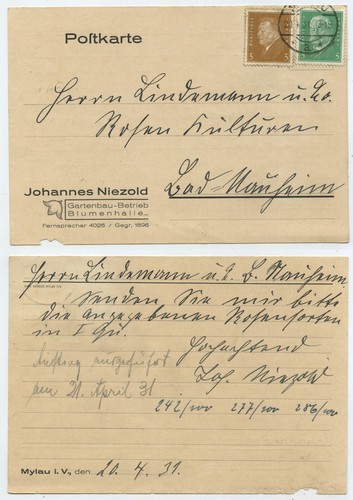 Postkarte
Herrn Lindemann u. Co.
Rosen Kulturen
Bad-Nauheim
Johannes Niezold
Gartenbau-Betrieb
Blumenhalle
Fernsprecher 4025 / Gegr. 1896
Herrn Lindemann u. C. B. Nauheim
Senden Sie mir bitte
die angegebenen Rosensorten
in I Qu.
Hochachtend
Auftrag ausgeführt
Joh. Niezold
am 21. April 31
242/100 277/100 286/100
Mylau i. V., den 20. 4. 31.